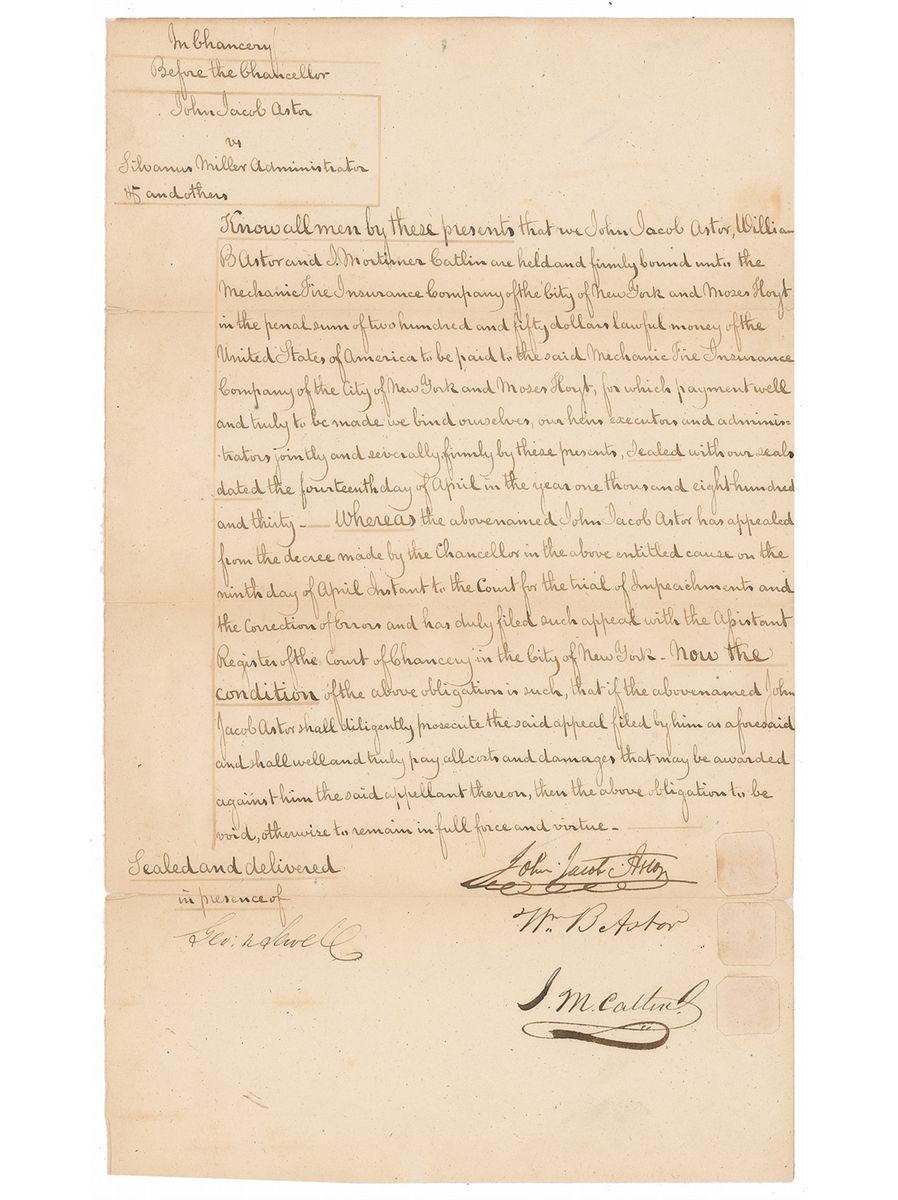 In Chancery
Before the Chancellor
John Jacob Astor
vs
Silvanus Miller Administrator
&c and others
Know all men by these presents that we John Jacob Astor, William
B Astor and J. Mortimer Catlin are held and firmly bound unto the
Mechanic Fire Insurance Company of the City of New York and Moses Hoyt
in the penal sum of two hundred and fifty dollars lawful money of the
United States of America to be paid to the said Mechanic Fire Insurance
Company of the City of New York and Moses Hoyt, for which payment well
and truly to be made we bind ourselves, our heirs executors and adminis=
-trators jointly and severally firmly by these presents, Sealed with our seals
dated the fourteenth day of April in the year one thousand eight hundred
and thirty — Whereas the abovenamed John Jacob Astor has appealed
from the decree made by the Chancellor in the above entitled cause on the
ninth day of April Instant to the Court for the trial of Impeachments and
the Correction of Errors and has duly filed such appeal with the Assistant
Register of the Court of Chancery in the City of New York - Now the
condition of the above obligation is such, that if the abovenamed John
Jacob Astor shall diligently prosecute the said appeal filed by him as aforesaid
and shall well and truly pay all costs and damages that may be awarded
against him the said appellant thereon, then the above obligation to be
void, otherwise to remain in full force and virtue —
Sealed and delivered
in presence of
John Jacob Astor
Wm B Astor
J. M. Catlin